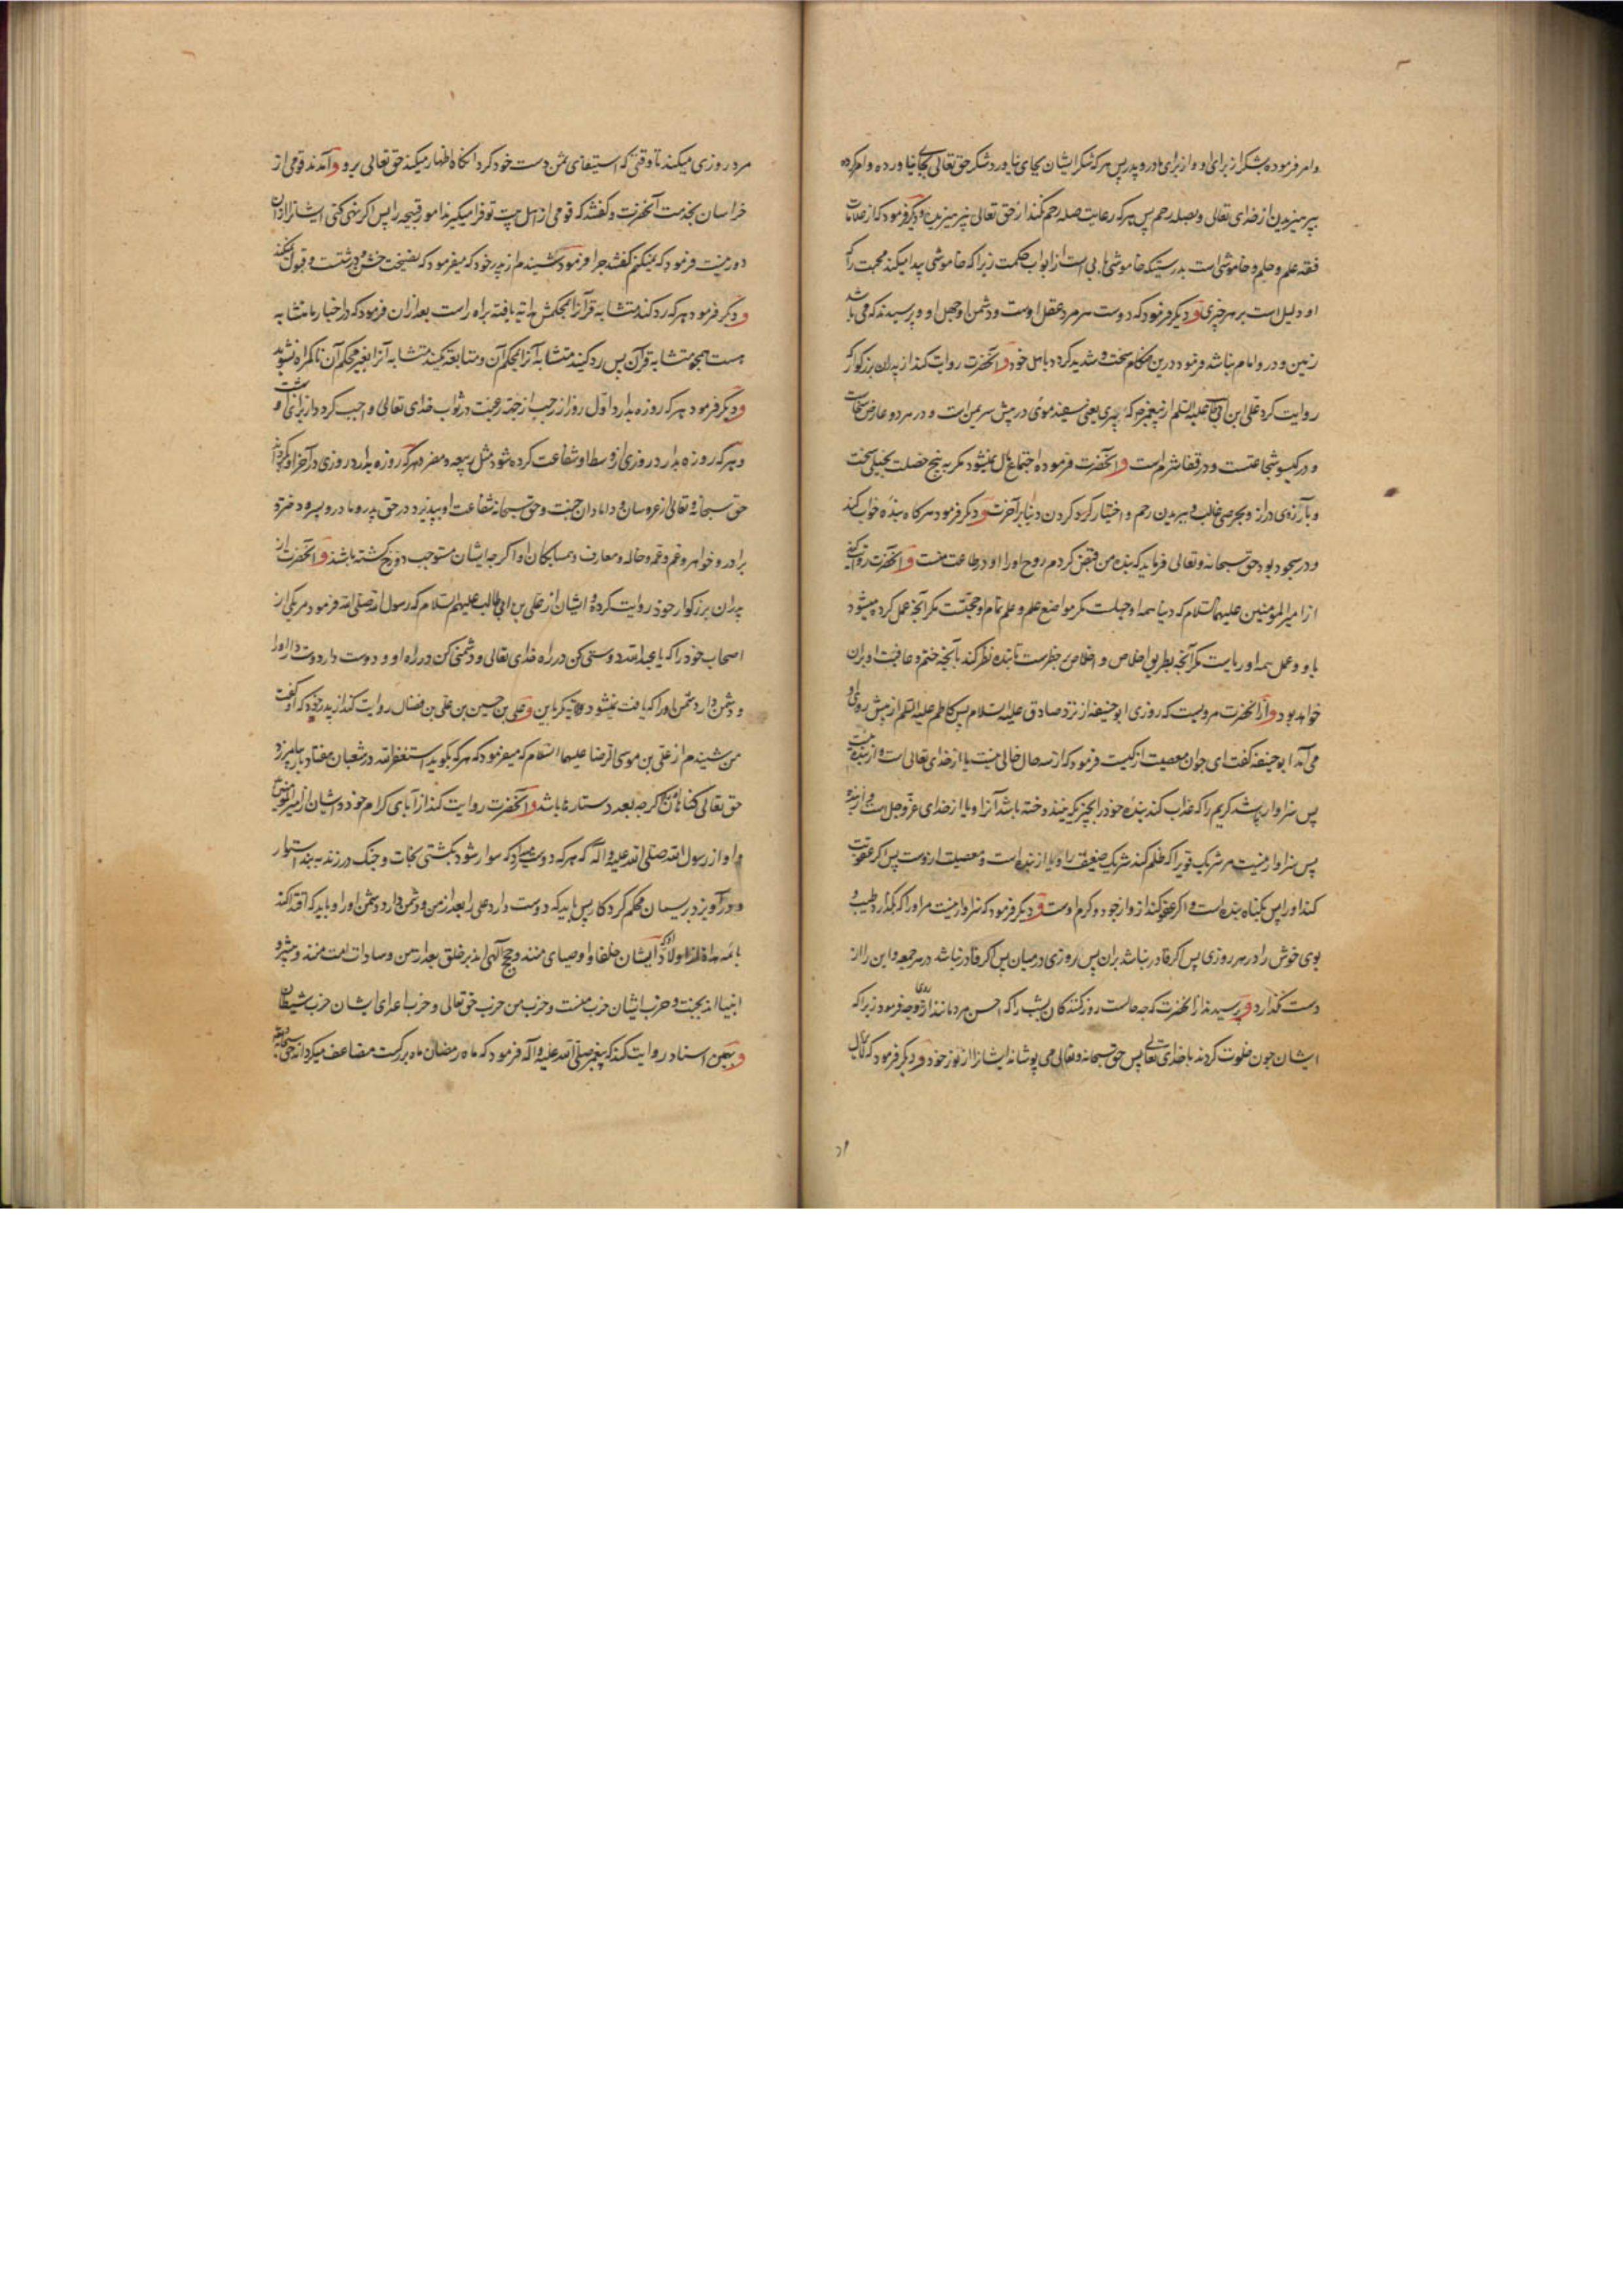 وامر فرموده بشکر از برای او و از برای مادر و پدر پس هر که شکر ایشان بجای نیاورد شکر حق تعالی بجای نیاورده و امر کرده
بپرهیزیدن از خدای تعالی و بصله رحم پس هر که رعایت صله رحم نکند از حق تعالی نپرهیزیده و دیگر فرمود که از علامات
فقه علم و حلم و خاموشی است بدرستیکه خاموشی بابی است از ابواب حکمت زیرا که خاموشی پیدا میکند محبت را
او دلیل است بر هر خیری و دیگر فرمود که دوست هر مرد عقل اوست و دشمن او جهل او و پرسیدند که می باشد
زمین و درو امام نباشد فرمود درین هنگام سخت و شدید گردد باهل خود و آنحضرت روایت کند از پدران بزرگوار که
روایت کرد علی ابن ابی طالب علیه السلم از پیغمبر که پیری یعنی سفید موئی در پیش سر یمن است و در هر دو عارض سخاوت
و در گیسو شجاعتست و در قفا شوم است و آنحضرت فرموده اجتماع مال نمیشود مگر به پنج خصلت بخیلی سخت
و بآرزوی دراز و بحرصی غالب و ببریدن رحم و اختیار کردن دنیا بر آخرت و دیگر فرمود هرگاه بنده خواب کند
و در سجود بود حق سبحانه و تعالی فرماید که بنده من قبض کردم روح او را و او در طاعت منست و آنحضرت روایت کند
از امیر المؤمنین علیهما السلام که دنیا همه او جهلست مگر مواضع علم و علم تمام او حجتست مگر آنچه عمل کرده میشود
باو و عمل همه او ریاست مگر آنچه بطریق اخلاص و اخلاص بر خطرست تا بنده نظر کند بآنچه ختم و عاقبت او بران
خواهد بود و از آنحضرت مرویست که روزی ابو حنیفه از نزد صادق علیه السلام پس کاظم علیه السلم از پیش روی او
می آمد ابو حنیفه گفت ای جوان معصیت از کیست فرمود که از سه حال خالی نیست یا از خدای تعالی است و از بنده نیست
پس سزاوار نباشد کریم را که عذاب کند بنده خود را بچیزیکه بنده نساخته باشد آنرا و یا از خدای عز و جل است و از بنده
پس سزاوار نیست مر شریک قویرا که ظلم کند شریک ضعیف را و یا از بنده است و معصیت از اوست پس اگر عقوبت
کند او را پس بگناه بنده است و اگر عفو کند از و از جود و کرم اوست و دیگر فرمود که سزاوار نیست مرد را که بگذارد طیب و
بوی خوش را در هر روزی پس اگر قادر نباشد بران پس روزی در میان پس اگر قادر نباشد در هر جمعه و این را از
دست نگذارد و پرسیدند از آنحضرت که چه حالست روز کنندگان بشب را که احسن مردمانند از روی وجه فرمود زیرا که
ایشان چون خلوت کردند با خدای تعالی پس حق سبحانه و تعالی می پوشاند ایشانرا از نور خود و دیگر فرمود که
مرد روزی میکند تا وقتی که استیفای ثمن دست خود کرد آنگاه اظهار میکند حق تعالی برو و آمدند قومی از
خراسان بخدمت آنحضرت و گفتند که قومی از اهل بیت تو فرا میگیرند امور قبیحه را پس اگر نهی کنی ایشانرا از آن
دور نیست فرمود که نمیکنم گفتند چرا فرمود شنیدم از پدر خود که میفرمود که نصیحت خشن و درشتست و قبول نمیکنند
و دیگر فرمود هر که رد کند متشابه قرآنرا بمحکمش راه یافته براه راست بعد ازان فرمود که در اخبار ما متشابه
هست همچو متشابه قرآن پس رد کنید متشابه آنرا بمحکم آن و متابعت مکنید متشابه آنرا بغیر محکم آن تا گمراه نشوید
و دیگر فرمود هر که روزه بدارد اول روز از رجب از جهت رغبت در ثواب خدای تعالی واجب گردد از برای او بهشت
و هر که روزه بدارد روزی از وسط او شفاعت کرده شود مثل ربیعه و مضر و هر که روزه بدارد روزی در آخر او بگرداند
حق سبحانه و تعالی از عروسان و دامادان جنت و حق سبحانه شفاعت او بپذیرد در حق پدر و مادر و پسر و دختر و
برادر و خواهر و عم و عمه و خاله و معارف و همسایگان او اگر چه ایشان مستوجب دوزخ گشته باشند و آنحضرت از
پدران بزرگوار خود روایت کرده و ایشان از علی بن ابی طالب علیهم السلام که رسول الله صلی الله فرمود مر یکی از
اصحاب خود را که یا عبد الله دوستی کن در راه خدای تعالی و دشمنی کن در راه او و دوست دار دوست دار او را
و دشمن دار دشمن او را که یافت نمیشود ولایت مگر باین و علی بن حسین بن علی بن فضال روایت کند از پدر خود که او گفت
من شنیدم از علی بن موسی الرضا علیهما السلام که میفرمود که هر که بگوید استغفر الله در شعبان هفتاد بار بیامرزد
حق تعالی گناهان او اگر چه بعدد ستاره ها باشد و آنحضرت روایت کند از آبای کرام خود و ایشان از امیر المؤمنین
و او از رسول الله صلی الله علیه و اله که هر که دوست میدارد که سوار شود بکشتی نجات و چنگ در زند به بند استوار
و در آویزد بریسمان محکم کردگار پس باید که دوست دارد علی را بعد از من و دشمن دارد دشمن او را و باید که اقتدا کند
بائمه هداة از اولاد او که ایشان خلفا و اوصیای منند و حجج الهی اند بر خلق بعد از من و سادات امت منند و پیشرو
انبیا اند بجنت و حزب ایشان حزب منست و حزب من حزب حق تعالی و حزب اعدای ایشان حزب شیطان
و بهمین اسناد روایت کند که پیغمبر صلی الله علیه و آله فرمود که ماه رمضان ماه بزرگست مضاعف میگرداند حق سبحانه